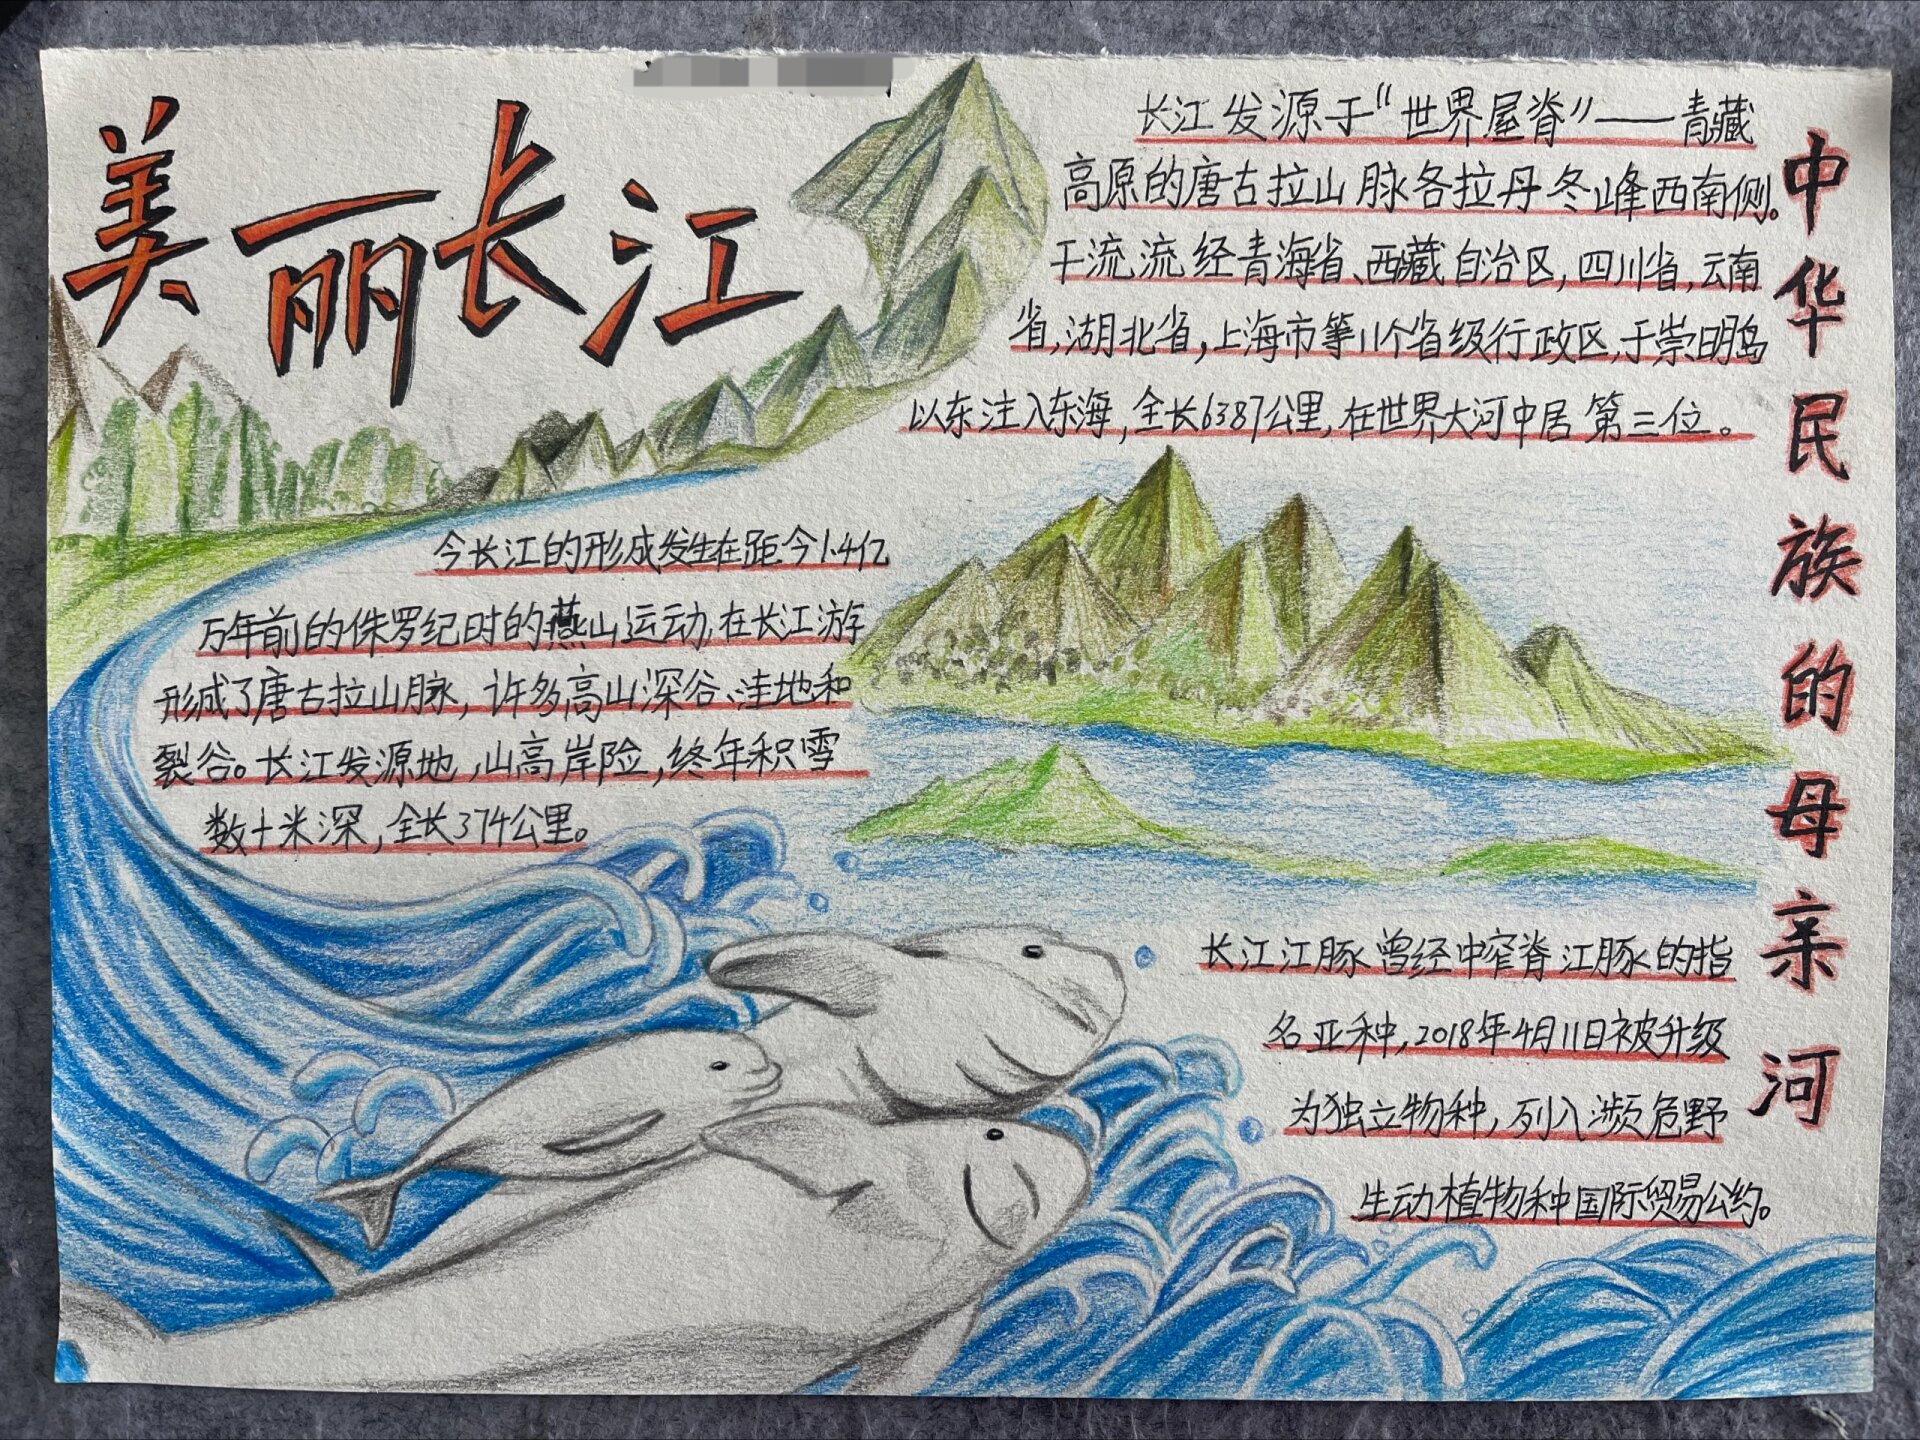 美丽长江
长江发源于“世界屋脊”——青藏
高原的唐古拉山脉各拉丹冬峰西南侧。
干流流经青海省、西藏自治区,四川省,云南
省,湖北省,上海市等11个省级行政区,于崇明岛
以东注入东海,全长6387公里,在世界大河中居第三位。
中华民族的母亲河
今长江的形成发生在距今1.4亿
万年前的侏罗纪时的燕山运动,在长江游
形成了唐古拉山脉,许多高山深谷、洼地和
裂谷。长江发源地,山高岸险,终年积雪
数十米深,全长374公里。
长江江豚曾经中窄脊江豚的指
名亚种,2018年4月11日被升级
为独立物种,列入濒危野
生动植物种国际贸易公约。